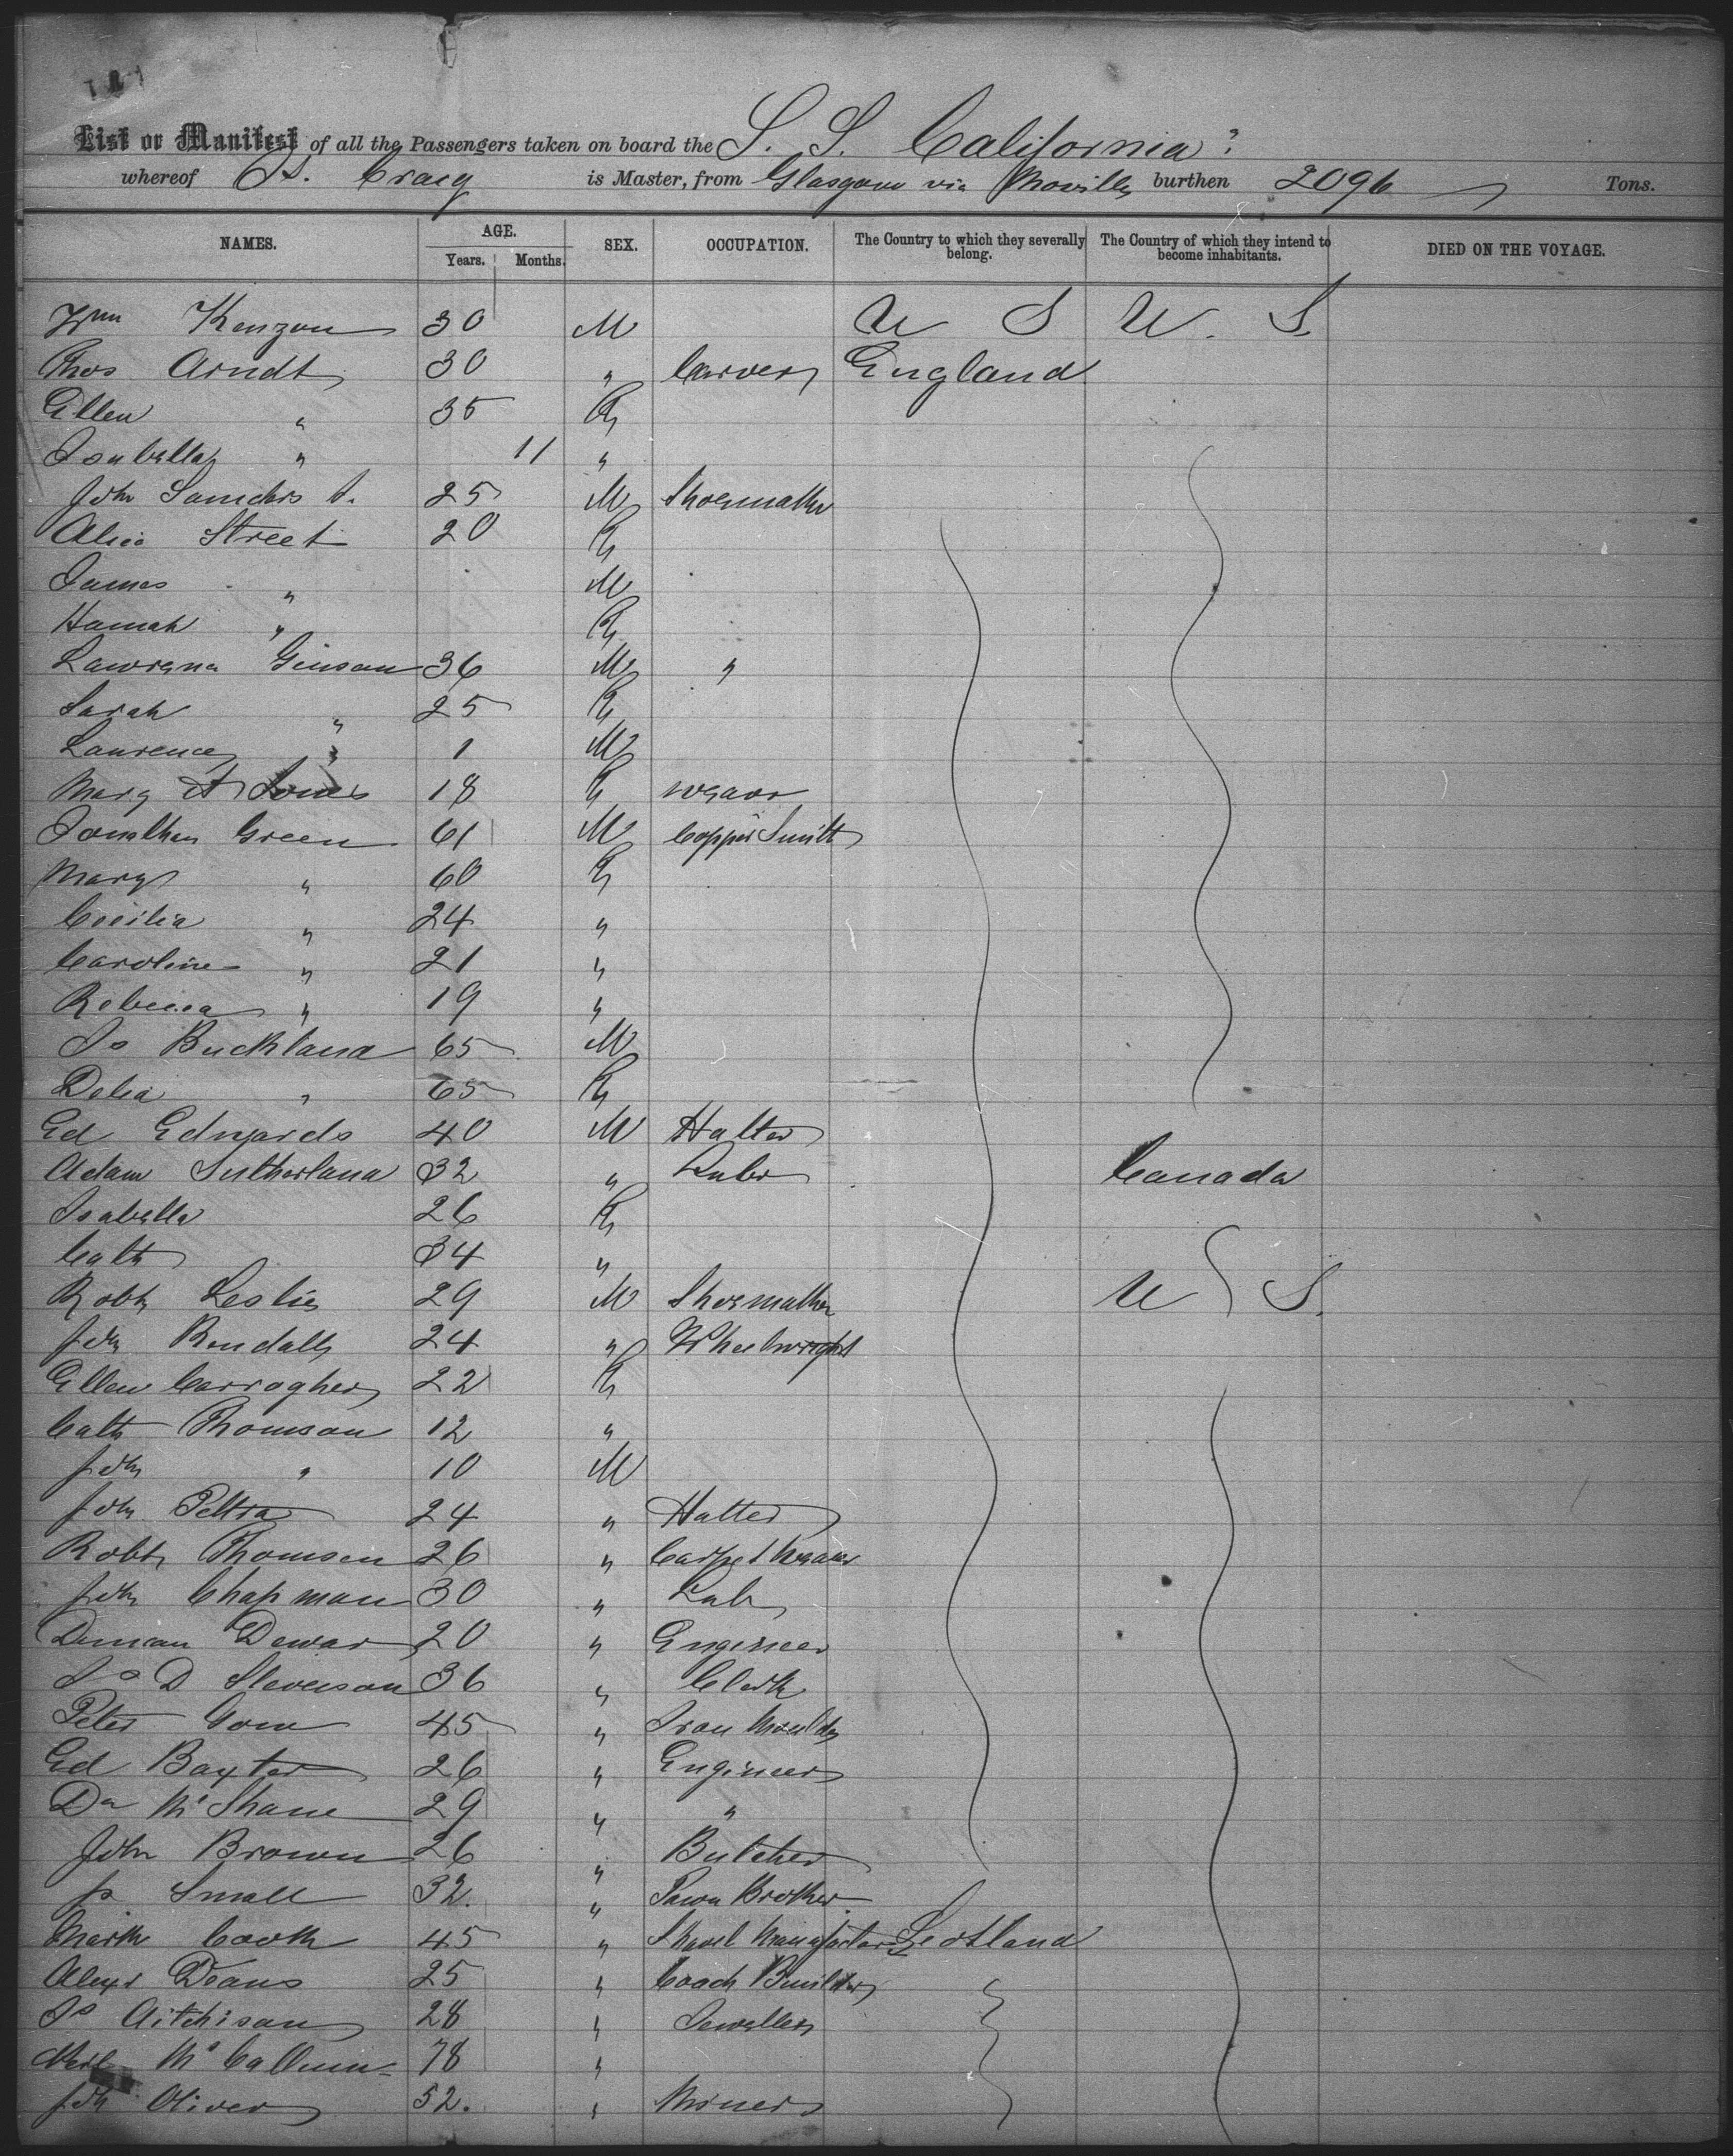 List or Manifest of all the Passengers taken on board the S. S. California
whereof Js. Craig is Master, from Glasgow via Moville burthen 2096 Tons.
NAMES. AGE. SEX. OCCUPATION. The Country to which they severally belong. The Country of which they intend to become inhabitants. DIED ON THE VOYAGE.
Years. Months.
Wm 30 M U S U. S.
Thos Arndt 30 " Carver England
Ellen " 35 F
Isabella " 11 "
John Saunders 25 M Shoemaker
Alice Street 20 F
James " M
Hannah " F
36 M "
Sarah " 25 F
Laurence " 1 M
Mary A Jones 18 F
Jonathan Green 61 M Copper Smith
Mary " 60 F
Cecilia " 24 "
Caroline " 21 "
Rebecca " 19 "
Js Buckland 65 M
Delia " 65 F
Ed Edwards 40 M Hatter
Adam Sutherland 32 " Labr Canada
Isabella 26 F
Cath 34 "
Robt Leslie 29 M Shoemaker U S.
John Rendall 24 " Wheelwright
Ellen Carragher 22 F
Cath Thomson 12 "
John " 10 M
John 24 " Hatter
Robt Thomson 26 " Carpet Weaver
John Chapman 30 " Lab
Duncan Dewar 20 " Engineer
Js D Stevenson 36 " Clerk
Peter Gow 45 " Iron Moulder
Ed Baxter 26 " Engineer
Dn McShane 29 " "
John Brown 26 " Butcher
Js Small 32. " Pawn Broker
Mark Cook 45 " Shawl Manufactor Scotland
Alexr Deans 25 " Coach Builder
Js Aitchison 28 " Jeweller
Neil McCallum 78 "
John Oliver 52. " Miner